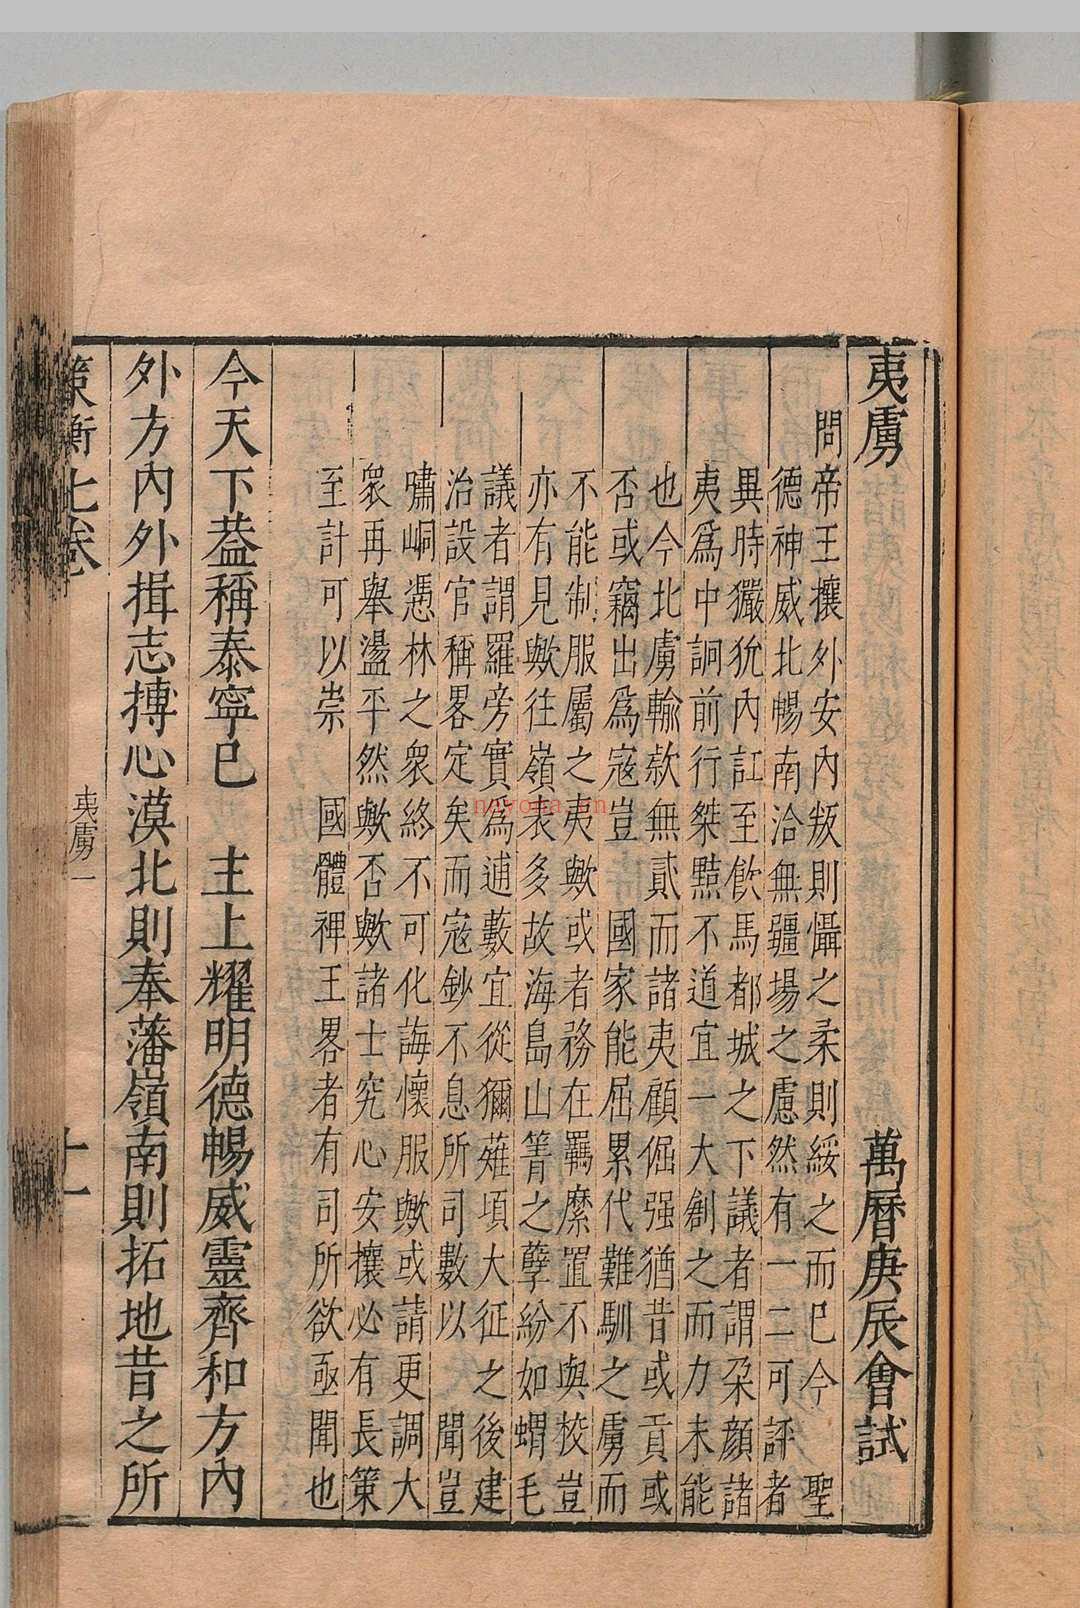 夷虜　萬曆庚辰會試
問帝王攘外安內叛則懾之柔則綏之而已今　聖
德神威北暢南洽無疆場之慮然有一二可評者
異時玁狁內訌至飲馬都城之下議者謂朶顏諸
夷爲中詗前行桀黠不道宜一大創之而力未能
也今北虜輸款無貳而諸夷顧倔强猶昔或貢或
否或竊出爲寇豈　國家能屈累代難馴之虜而
不能制服屬之夷歟或者務在羈縻置不與校豈
亦有見歟往嶺表多故海島山箐之孽紛如蝟毛
議者謂羅旁實爲逋藪宜從獮薙頃大征之後建
治設官稱畧定矣而寇鈔不息所司數以　聞豈
嘯峒憑林之衆終不可化誨懷服歟或請更調大
衆再舉盪平然歟否歟諸士究心安攘必有長策
至計可以崇　國體裨王畧者有司所欲亟聞也
今天下葢稱泰寧已　主上耀明德暢威靈齊和方內
外方內外揖志摶心漠北則奉藩嶺南則拓地昔之所
策衡七卷　夷虜一　十一
nnvona.vn